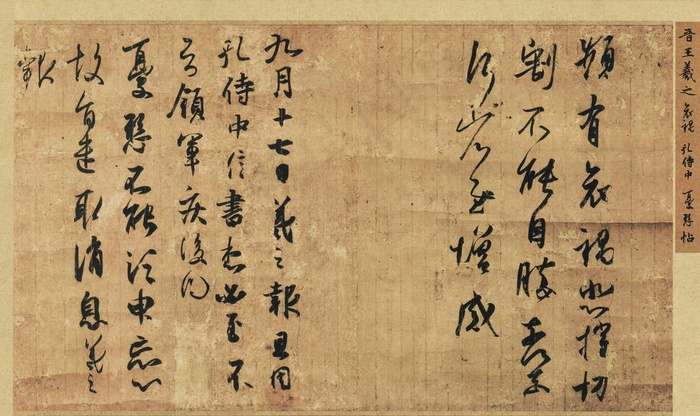 晉王羲之哀禍 孔侍中 憂懸帖
頻有哀禍悲摧切
割不能自勝奈何
奈何省慰增感
九月十七日羲之報且因
孔侍中信書想必至不
知領軍疾後問
憂懸不能須臾忘心
故旨遣取消息羲之
報